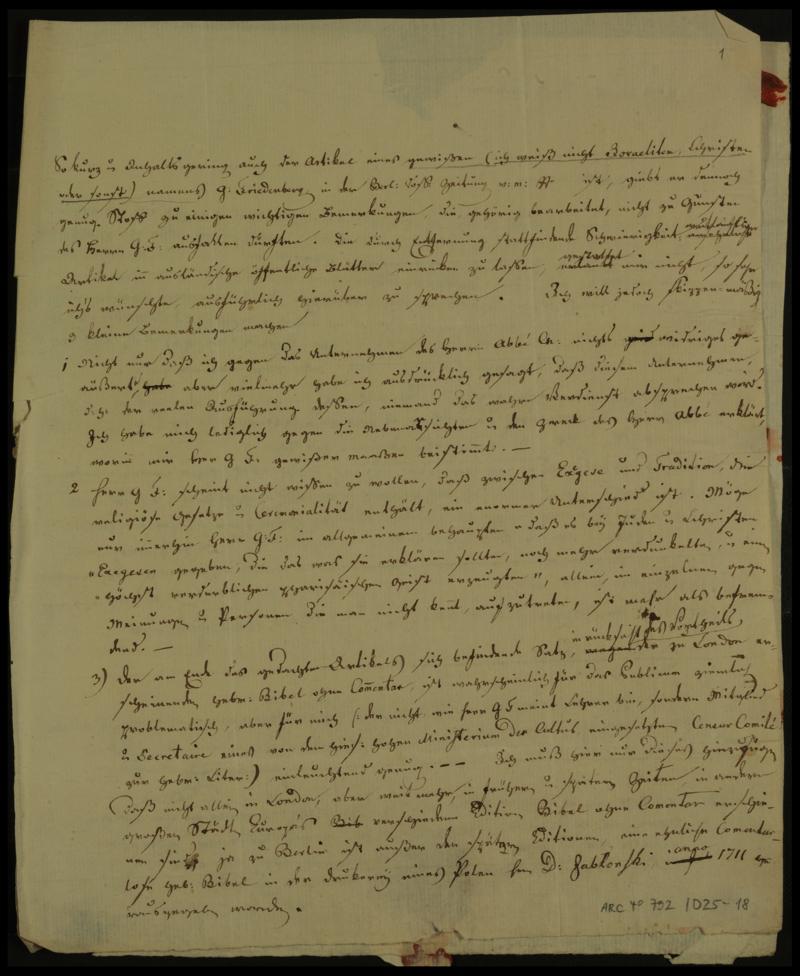 1
So kurz u Inhaltsgering auch der Artikel eines gewißen (ich weiß nicht Israeliten, Christen
oder sonst) namens G: Friedenberg in der Berl: Voss Zeitung v: m: ist, giebt er dennoch
genug Stoff zu einigen wichtigen Bemerkungen, die gehörig bearbeitet, nicht zu Gunsten
des Herrn G. F: ausfallen dürften. Die durch Entfernung stattfindende Schwierigkeit,
Artikel in ausländische öffentliche Blätter einrücken zu lassen, gestattet mir nicht, so sehr
ich's wünschte, ausführlich hierüber zu sprechen. Ich will jedoch skizzen-mäßig
3 kleine Bemerkungen machen
1 Nicht nur daß ich gegen das Unternehmen des Herrn Abbé Ch: nichts widriges ge-
äußert, aber vielmehr habe ich ausdrücklich gesagt, daß diesem Unternehmen,
d.h. der reelen Ausführung dessen, niemand das wahre Verdienst absprechen wird.
Ich habe mich lediglich gegen die Nebenabsichten u den Zweck des Herrn Abbé erklärt,
worin mir Herr G F. gewißer maaßen beistimmt. —
2 Herr G F: scheint nicht wissen zu wollen, daß zwischen Exegese und Tradition, die
religiöse Gesetze u Ceremonialität enthält, ein enormer Unterschied ist. Möge
nur immerhin Herr G. F: im allgemeinem behaupten „daß es bey Juden u Christen
„Exegesen gegeben, die das was sie erklären sollten, noch mehr verdunkelten, u einen
„höchst verderblichen pharisäischen Geist erzeugten", allein, im einzelnen gegen
Meinungen u Personen die man nicht kennt, aufzutreten, ist mehr als befrem-
dend. —
3) Der am Ende des gedachten Artikels sich befindende Satz, in rücksicht des Vortheils, der zu London er-
scheinenden hebr: Bibel ohne Com̅entar, ist wahrscheinlich für das Publicum ziemlich
problematisch, aber für mich (: der nicht wie Herr G F meint Lehrer bin, sondern Mitglied
u Secretaire eines von dem hies: hohen Ministerium des Cultus eingesetzten Censur Comité
zur hebr: Liter:) einleuchtend genug. — — Ich muß hier nur dieses hinzufügen
daß nicht allein in London, aber weit mehr, in frühern u spätern Zeiten in andern
großen Städten Europa's verschiedene Edition Bibel ohne Comentar erschie-
nen sind, ja zu Berlin ist außer den spätern Editionen, eine ähnliche Comentar-
lose heb: Bibel in der drukerey eines Polen Hrn D: Jablonski anno 1711 he-
rausgegeben worden.
ARC 4° 792 /D25-18